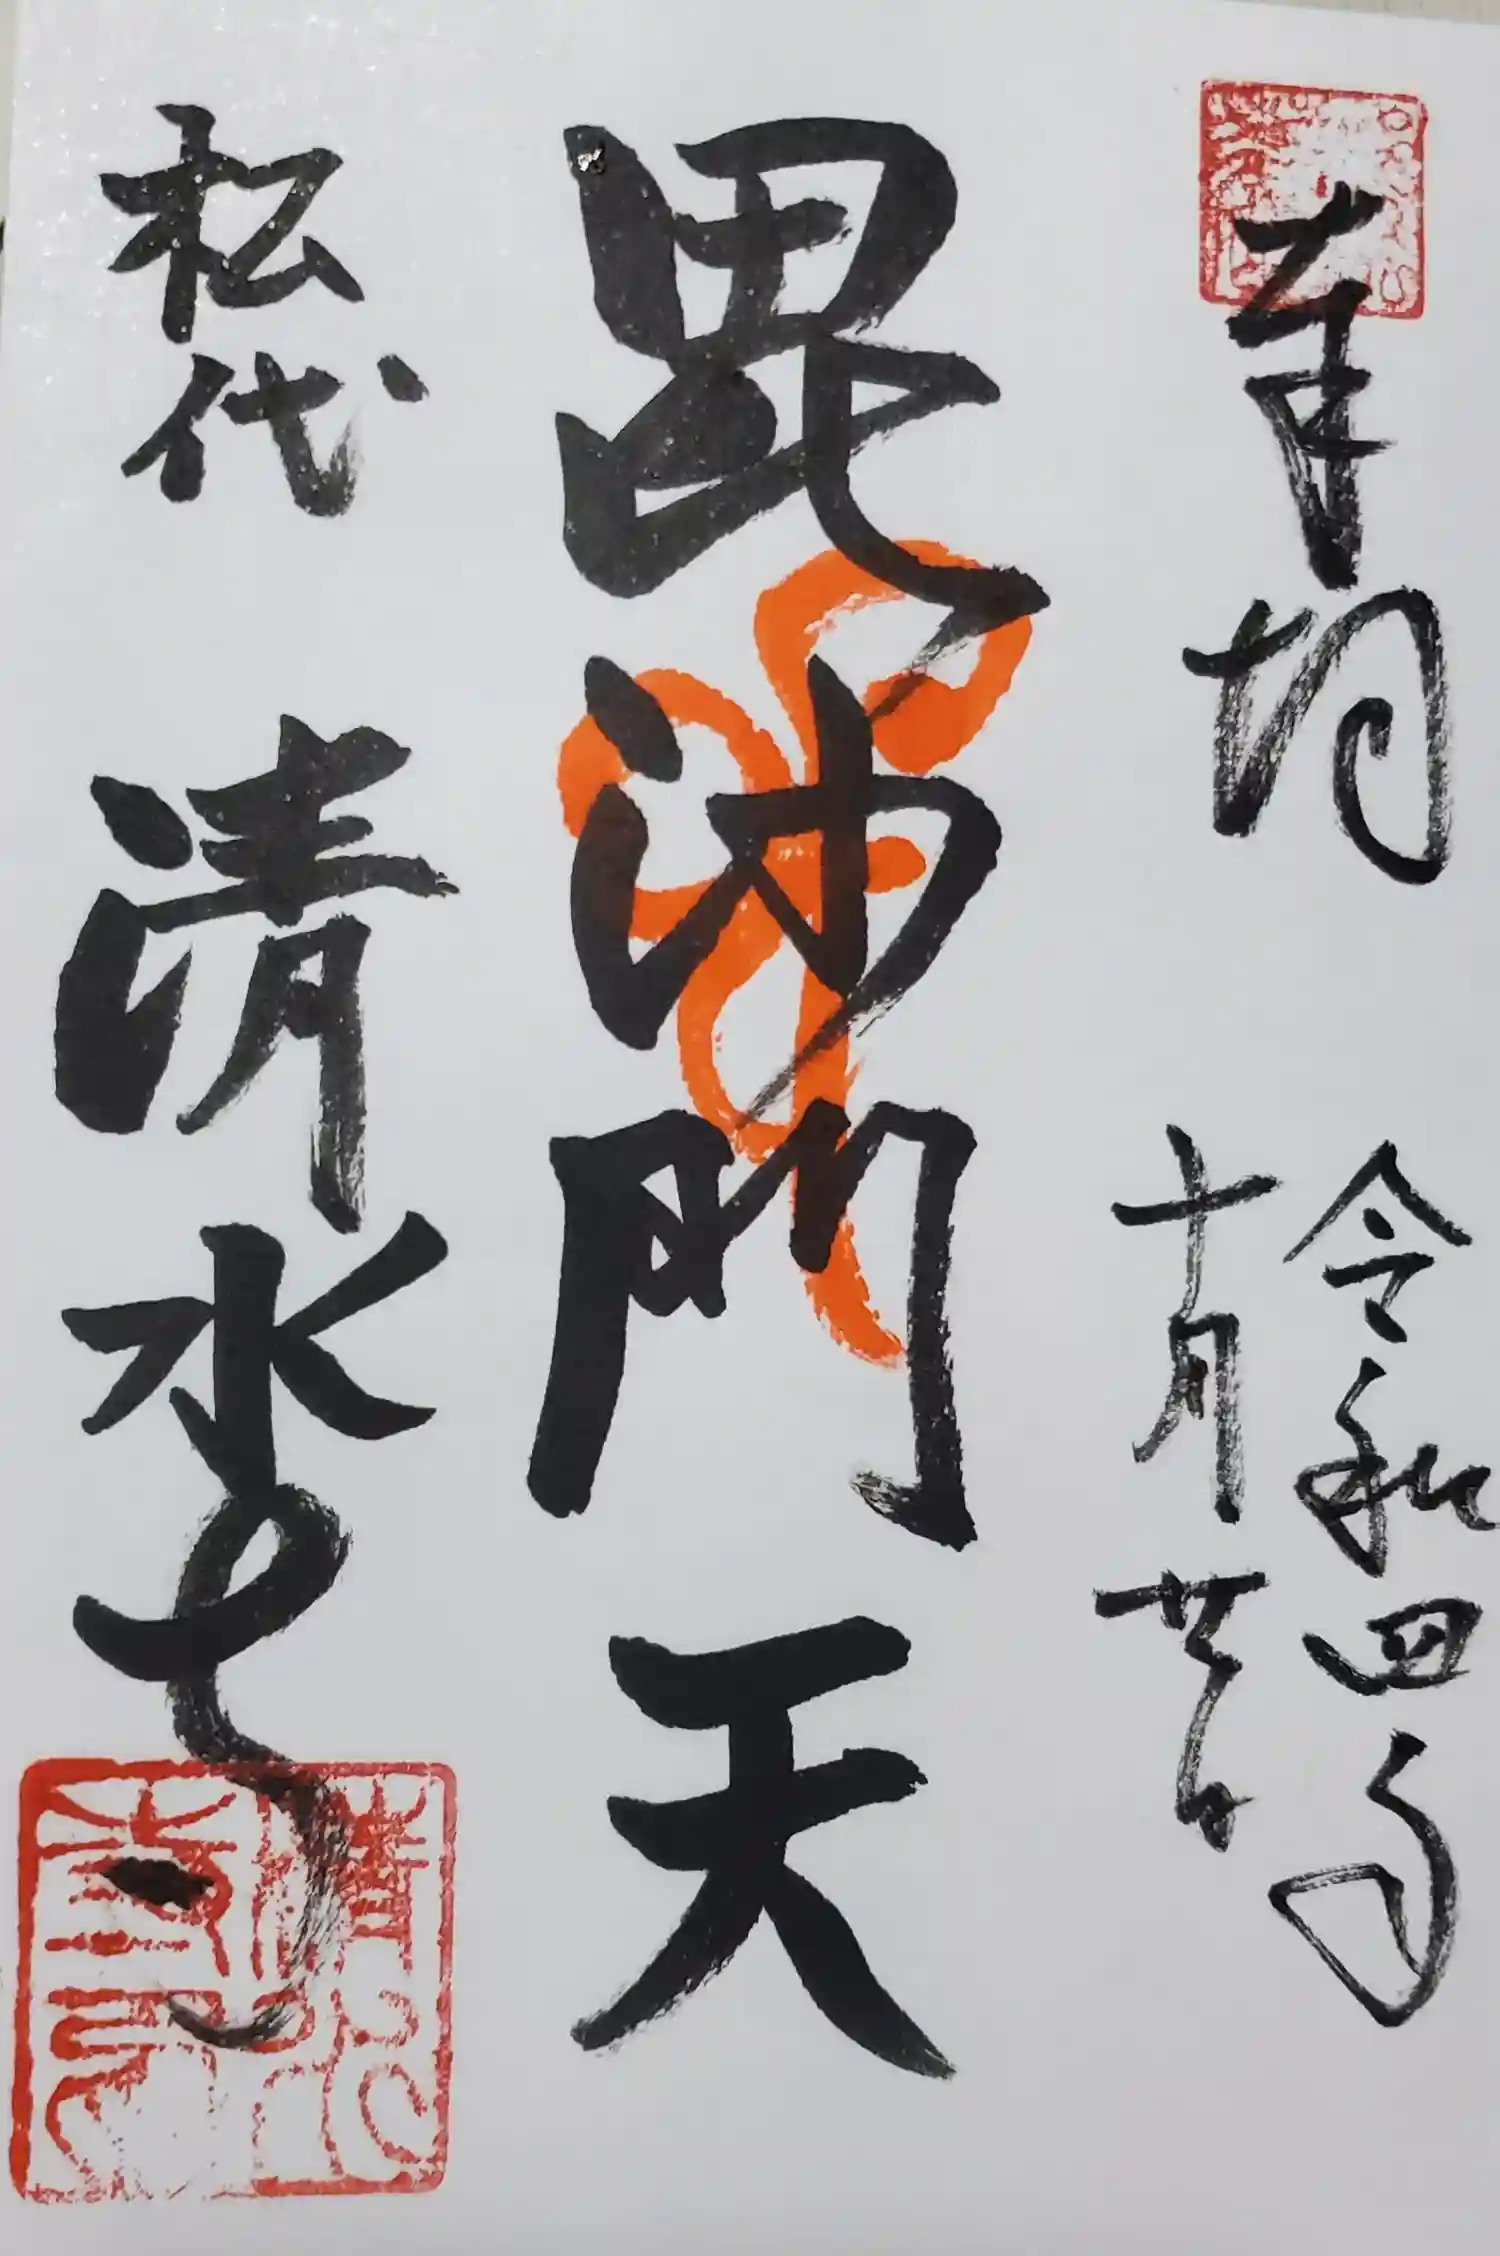 奉拝
令和四年
十月廿一日
毘沙門天
松代
清水寺